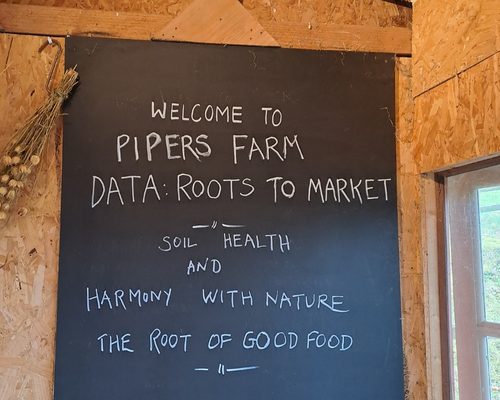 WELCOME TO
PIPERS FARM
DATA: ROOTS TO MARKET
SOIL HEALTH
AND
HARMONY WITH NATURE
THE ROOT OF GOOD FOOD